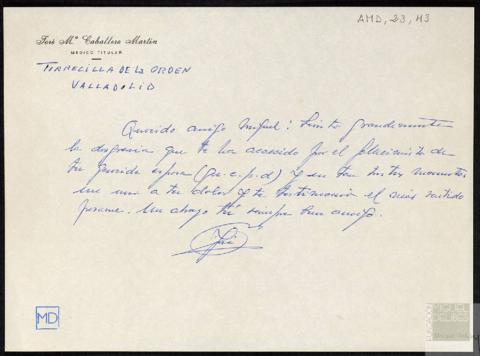 AMD, 23, 113
José Mª Caballero Martín
MEDICO TITULAR
TORRECILLA DE LA ORDEN
VALLADOLID
Querido amigo Miguel: Siento grandemente
la desgracia que te ha acaecido por el fallecimiento de
tu querida esposa (q.e.p.d) y en tan tristes momentos
me uno a tu dolor y te testimonio el más sentido
pesame. Un abrazo de tu siempre buen amigo.
José
MD
FUNDACIÓN MIGUEL DELIBES